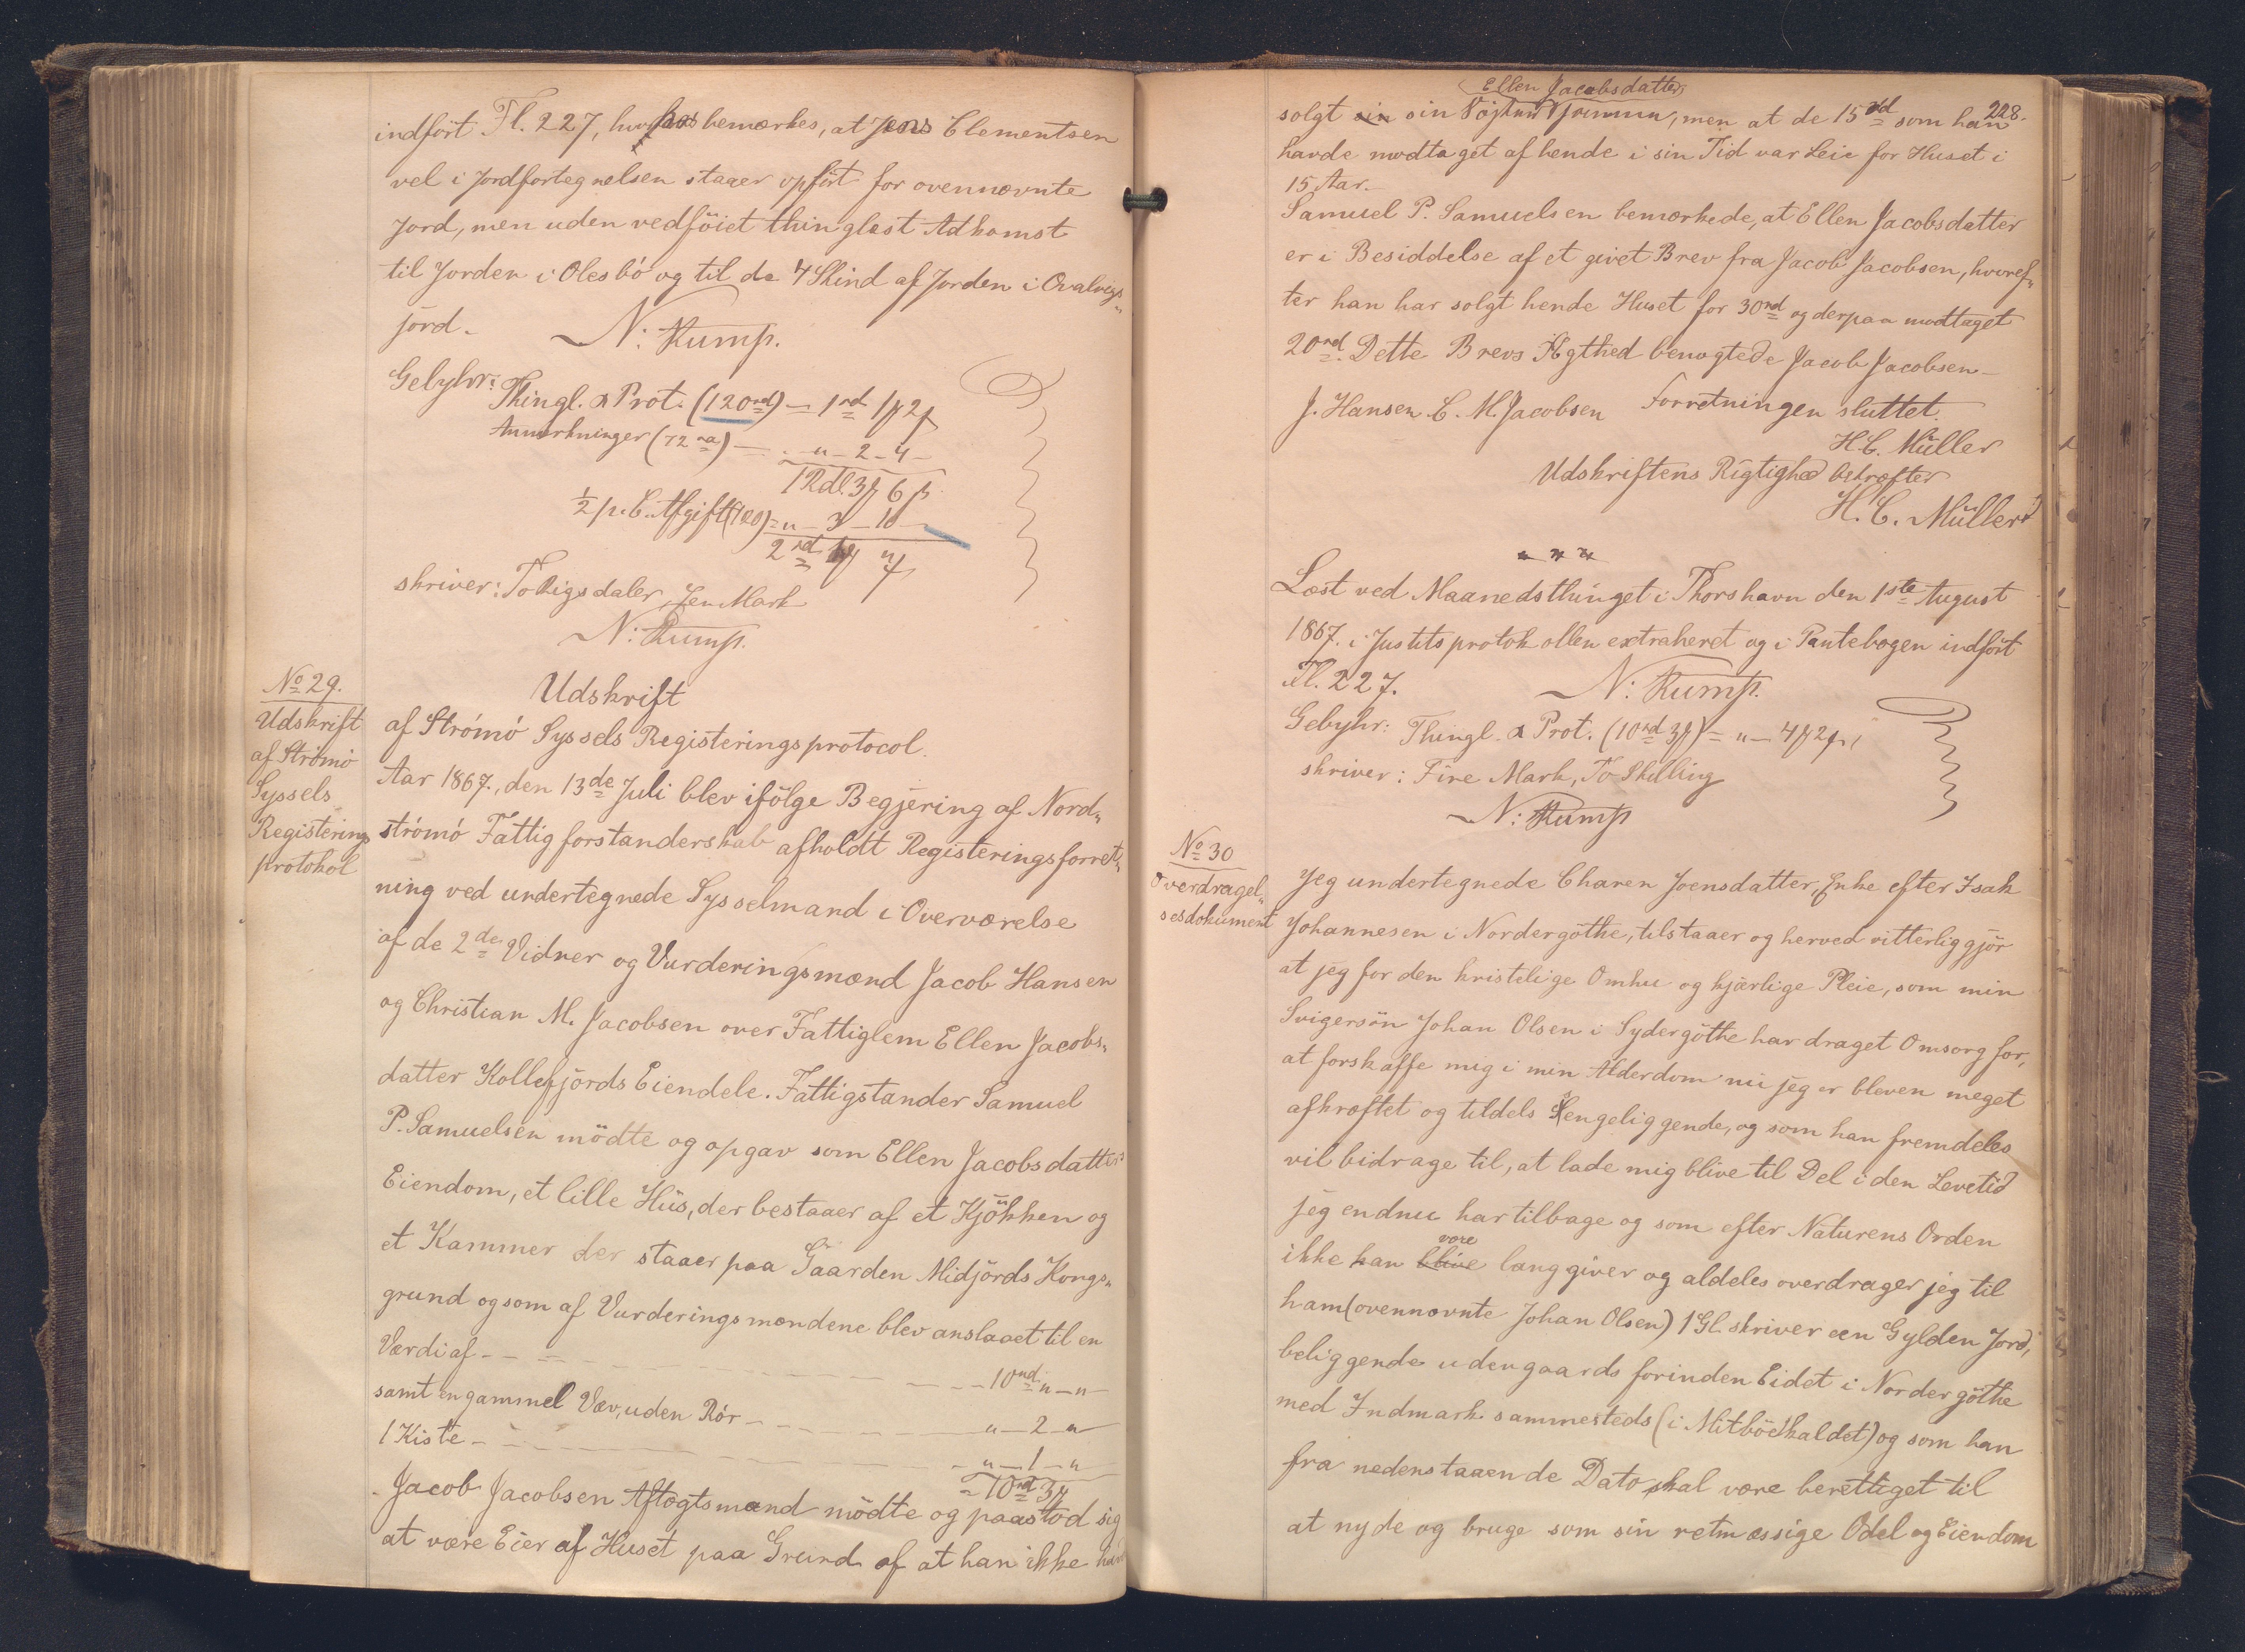 indført Fl. 227, hvorhos bemærkes, at Jens Clementsen
vel i Jordfortegnelsen staaer opført for ovennævnte
Jord, men uden vedføiet thinglæst Adkomst
til Jorden i Olesbó og til de 4 Skind af Jorden i Qvalvigs„
jord.
N: Rump.
Gebyhr:
Thingl. & Prot. (120rd) = 1rd 1 2
Anmærkninger (72rd) — „ - 2 - 4 -
1 Rdl. 3 6 ß
½ p.C. Afgift (120) = „ - 3 - 10 -
2rd 1 4
skriver: To Rigsdaler, Jen Mark
N: Rump.
No 29.
Udskrift
af Strömö
Syssels
Registerings
protokol
Udskrift
af Strómó Syssels Registeringsprotocol.
Aar 1867, den 13de Juli blev ifölge Begjering af Nord„
strómó Fattigforstanderskab afholdt Registeringsforret„
ning ved undertegnede Sysselmand i Overværelse
af de 2de Vidner og Vurderingsmænd Jacob Hansen
og Christian M. Jacobsen over Fattiglem Ellen Jacobs„
datter Kollefjords Eiendele. Fattigstander Samuel
P. Samuelsen mödte og opgav som Ellen Jacobsdatters
Eiendom, et lille Hús, der bestaaer af et Kjökken og
et Kammer der staaer paa Gaarden Midjórds Kongs„
grund og som af Vurderingsmændene blev anslaaet til en
Værdi af - - - 10rd „ - „ -
samt en gammel Væv, uden Rór - - „ - 2 - „
1 Kiste - - - „ - 1 - „
= 10rd 3
Jacob Jacobsen Aftægtsmand mödte og paastod sig
at være Eier af Huset paa Grund af at han ikke havde
228.
Ellen Jacobsdatter
solgt sin sin , men at de 15rd som han
havde modtaget af hende i sin Tid var Leie for Huset i
15 Aar.
Samuel P. Samuelsen bemærkede, at Ellen Jacobsdatter
er i Besiddelse af et givet Brev fra Jacob Jacobsen, hvoref„
ter han har solgt hende Huset for 30rd og derpaa modtaget
20rd. Dette Brevs Ægthed benægtede Jacob Jacobsen -
Forretningen sluttet.
J. Hansen C. M. Jacobsen
H.C. Müller
Udskriftens Rigtighed bekræfter
H. C. Müller
Læst ved Maanedsthinget i Thorshavn den 1ste August
1867. i Justitsprotokollen extraheret og i Pantebogen indfört
Fl. 227.
N: Rump.
Gebyhr: Thingl. & Prot. (10rd 3) = „ - 4 2
skriver: Fire Mark, To Skilling
N: Rump
No 30
Overdragel„
sesdokument
Jeg undertegnede Charen Joensdatter, Enke efter Isak
Johannesen i Nordergöthe, tilstaaer og herved vitterliggjör
at jeg for den kristelige Omhu og kjærlige Pleie, som min
Svigersön Johan Olsen i Sydergöthe har draget Omsorg for,
at forskaffe mig i min Alderdom nú jeg er bleven meget
afkræftet og tildels sengeliggende, og som han fremdeles
vil bidrage til, at lade mig blive til Del i den Levetid
jeg endnu har tilbage og som efter Naturens Orden
være
ikke kan blive lang giver og aldeles overdrager jeg til
ham (ovennævnte Johan Olsen) 1 Gl. skriver een Gylden Jord,
beliggende udengaards forinden Eidet i Nordergöthe
med Indmark sammesteds (i Mitböekaldet) og som han
fra nedenstaaende Dato skal være berettiget til
at nyde og bruge som sin retmæssige Odel og Eiendom